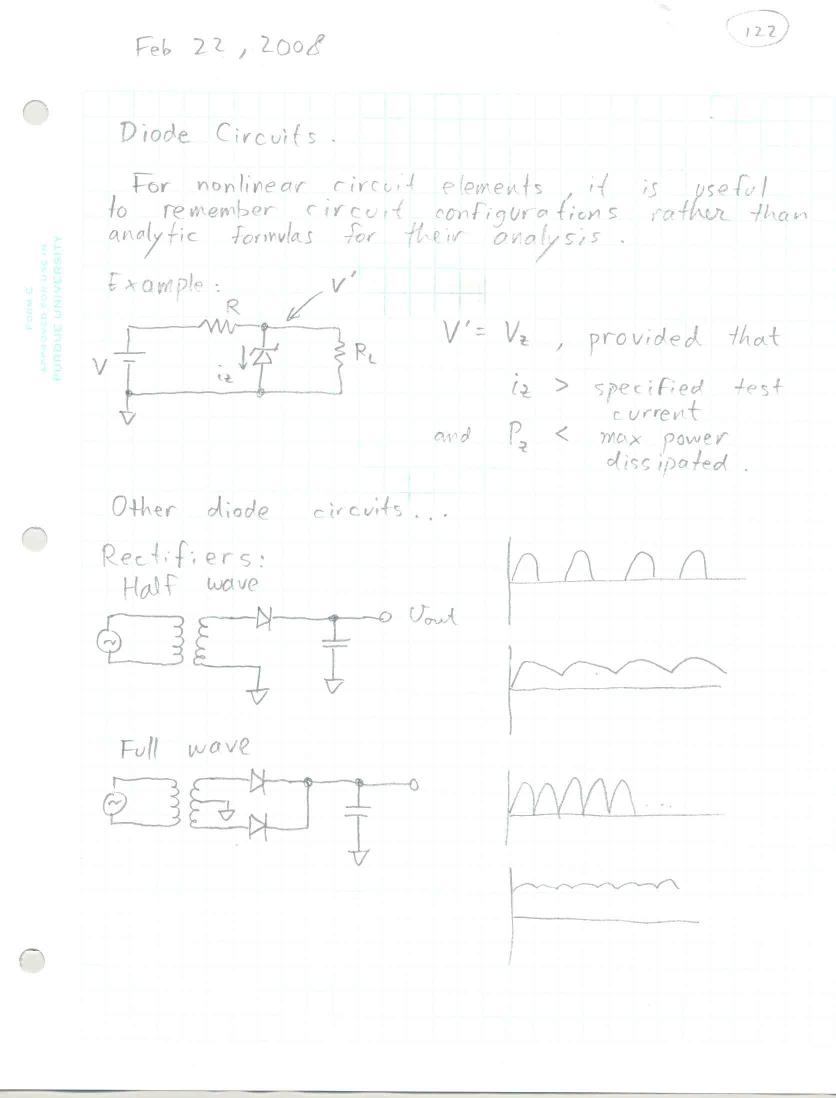 122
Feb 22, 2008
Diode Circuits.
For nonlinear circuit elements, it is useful
to remember circuit configurations rather than
analytic formulas for their analysis.
Example:
V'
R
V
iz
RL
V' = Vz , provided that
iz > specified test
current
and Pz < max power
dissipated.
Other diode circuits...
Rectifiers:
Half wave
Vout
Full wave
....
FORM C
APPROVED FOR USE IN
PURDUE UNIVERSITY